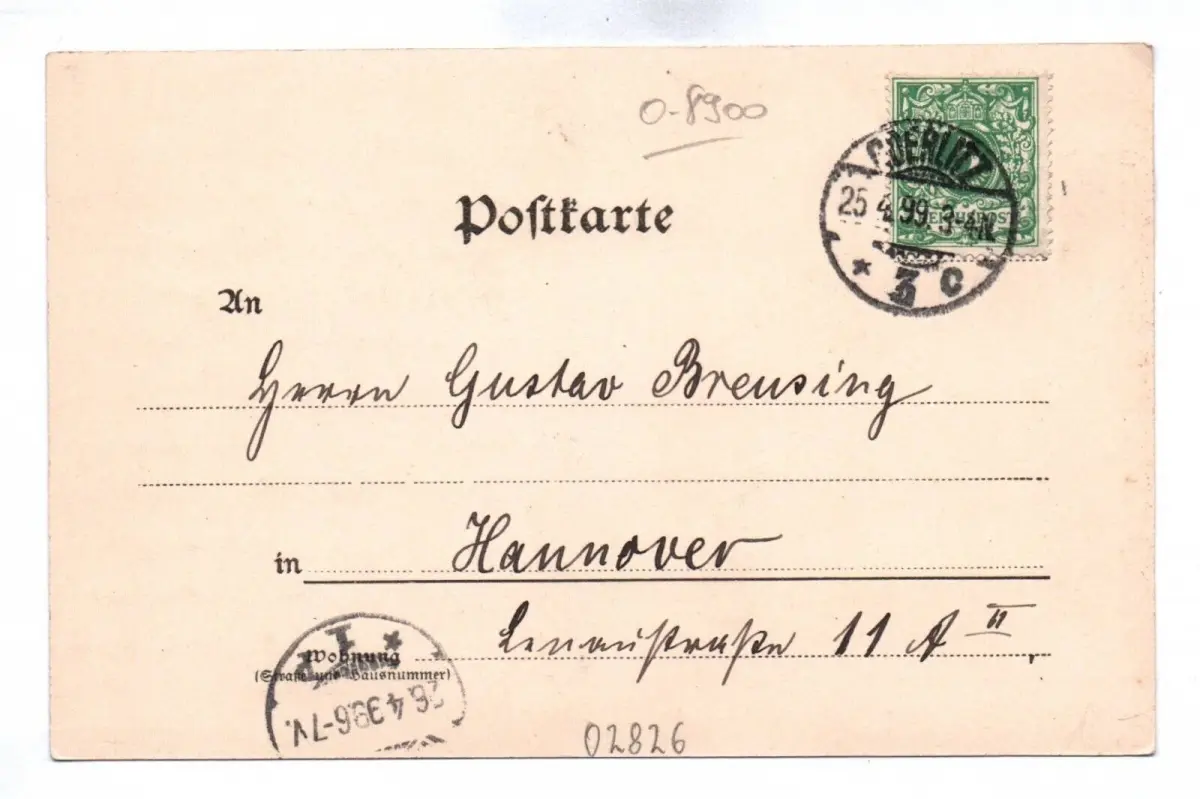 O-8900
Postkarte
GOERLITZ
25.4.99.3-4N.
REICHSPOST
* 3 c
An
Herrn Gustav Breusing
in Hannover
Wohnung Lenaustraße 11 A II
(Straße und Hausnummer)
26.4.99.6-7V.
02826